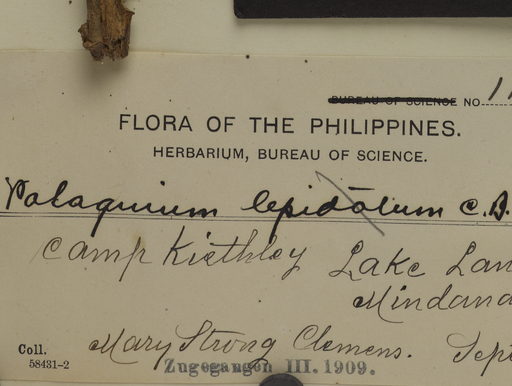 BUREAU OF SCIENCE NO. 11
FLORA OF THE PHILIPPINES.
HERBARIUM, BUREAU OF SCIENCE.
Palaquium lepidotum C.B.
Camp Kiethley Lake Lan
Mindana
Coll. Mary Strong Clemens. Sept
58431-2 Zugegangen III. 1909.